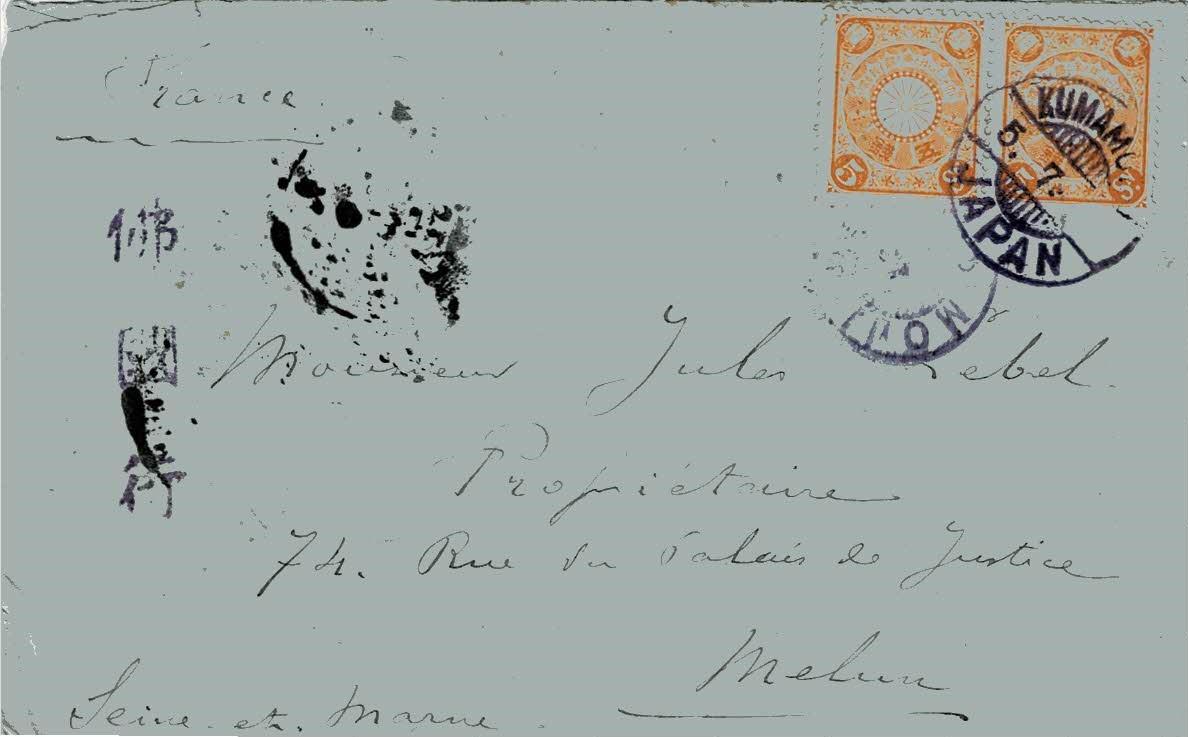 France
佛國行
5 S.
5 S.
KUMAMO
5. 7.
JAPAN
Monsieur Jules Lebel.
Propriétaire
74. Rue du Palais de Justice
Melun
Seine-et-Marne.